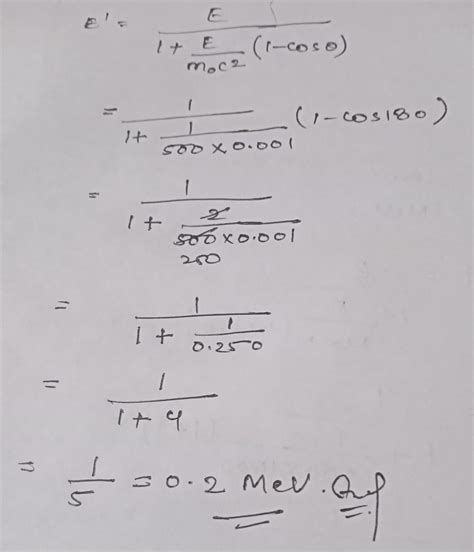 E' = E / (1 + E/m₀c² (1-cosθ))
= 1 / (1 + 1/(500 × 0.001)) (1-cos180)
= 1 / (1 + 2/(500 × 0.001))
250
= 1 / (1 + 1/0.250)
= 1 / (1 + 4)
= 1/5 = 0.2 MeV.